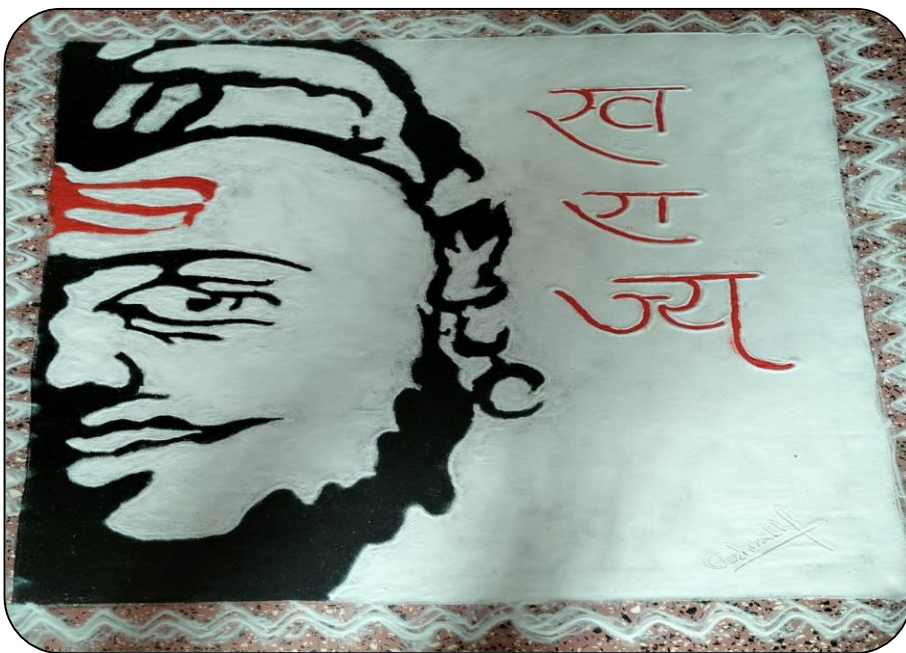 स्व
रा
ज्य